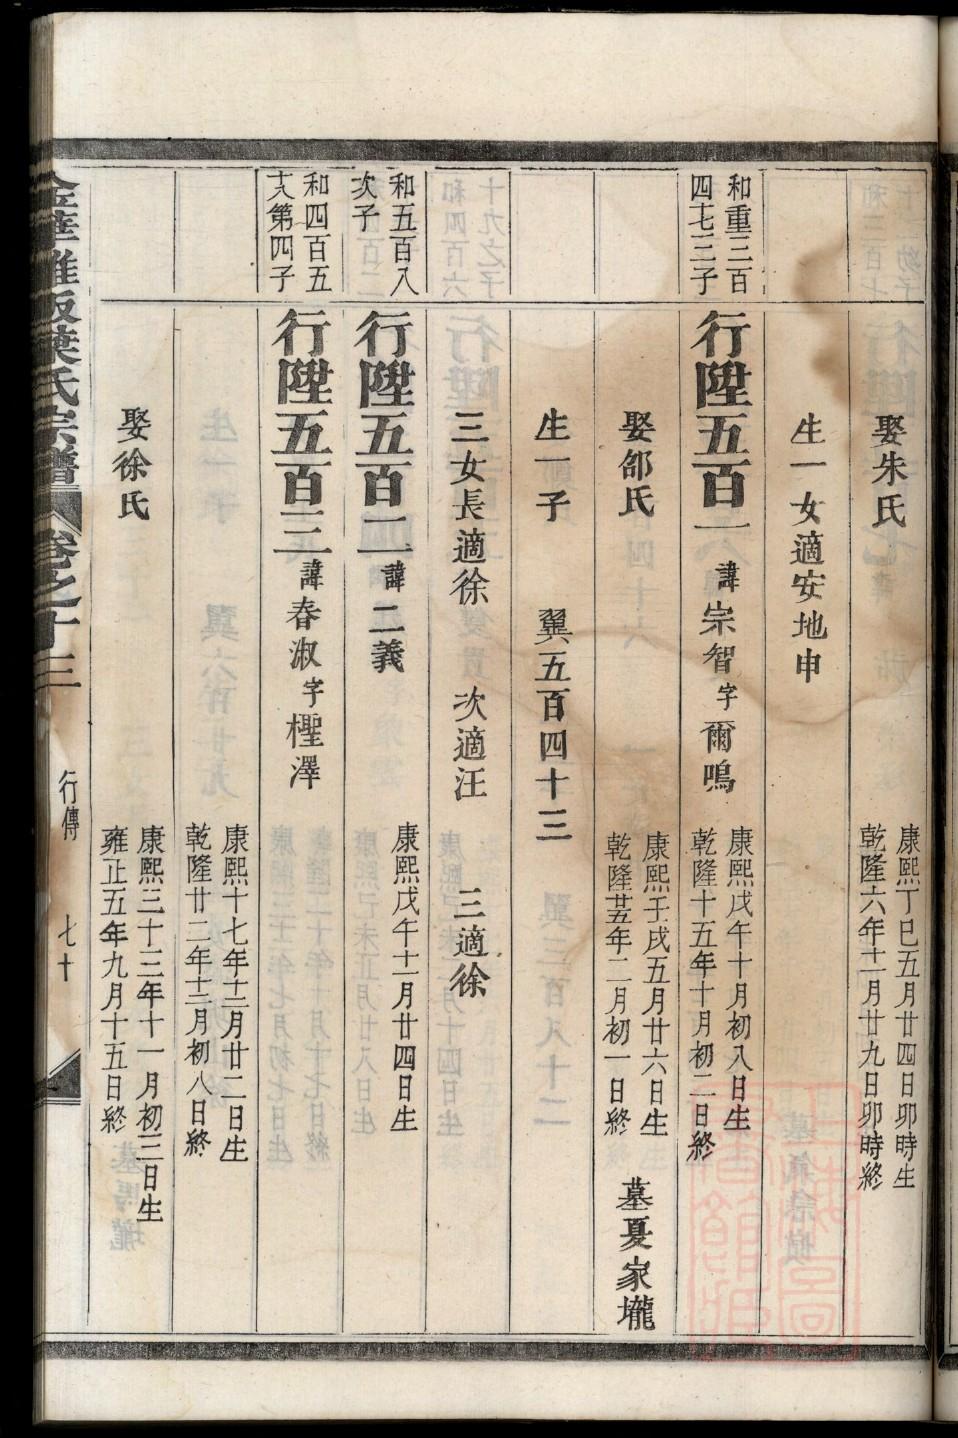 娶朱氏
康熙丁巳五月廿四日卯時生
乾隆六年十一月廿九日卯時終
生一女適安地申
和重三百
四七三子
行陞五百一 諱宗智字爾鳴
康熙戊午十月初八日生
乾隆十五年十月初二日終
娶郤氏
康熙壬戌五月廿六日生
二月初一日終
墓夏家壠
生一子 翼五百四十三
三女長適徐 次適汪 三適徐
和五百八
次子
行陞五百二 諱二義
康熙戊午十一月廿四日生
和四百五
十八第四子
行陞五百三 諱春淑字樫澤
康熙十七年十二月廿二日生
乾隆廿二年十二月初八日終
娶徐氏
康熙三十三年十一月初三日生
雍正五年九月十五日終
氏宗譜 卷之十三 行傳 七十